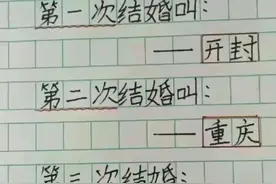 第一次结婚叫：
——开封
第二次结婚叫：
——重庆
第三次结婚：